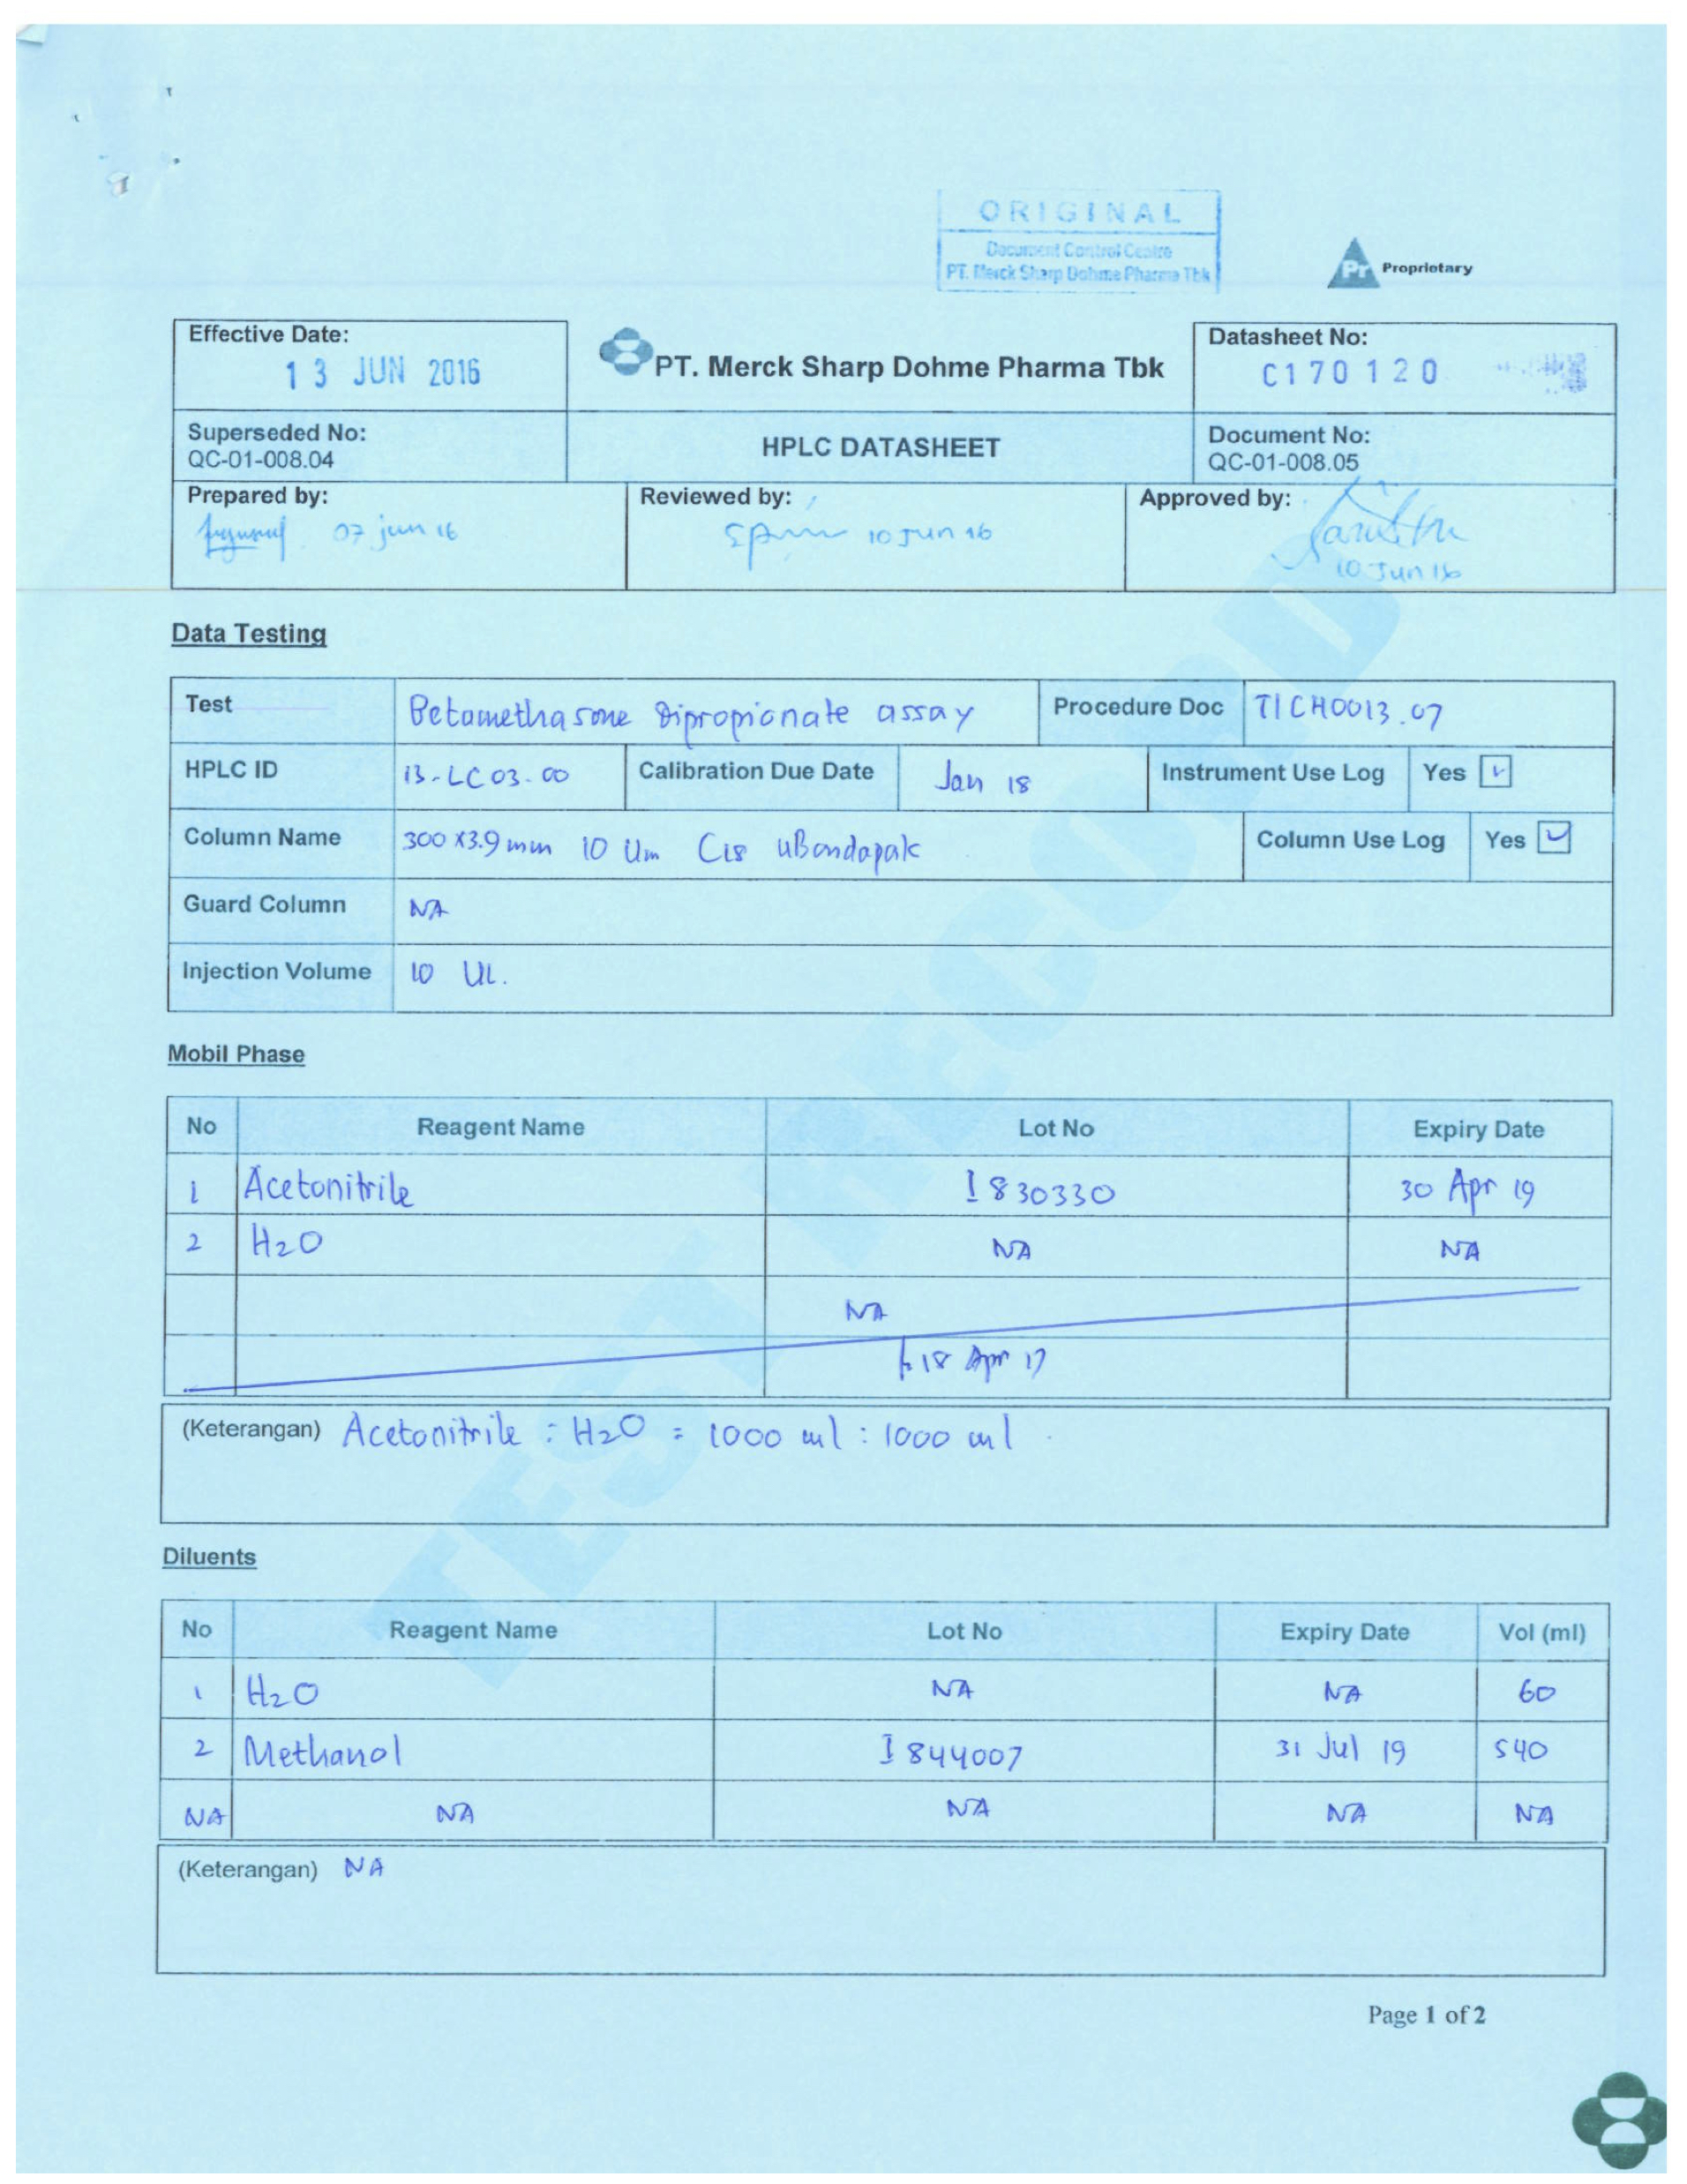 ORIGINAL
Document Control Centre
PT. Merck Sharp Dohme Pharma Tbk
Pr Proprietary
Effective Date:
13 JUN 2016
PT. Merck Sharp Dohme Pharma Tbk
Datasheet No:
C170120
Superseded No:
QC-01-008.04
HPLC DATASHEET
Document No:
QC-01-008.05
Prepared by:
07 jun 16
Reviewed by:
10 Jun 16
Approved by:
10 Jun 16
Data Testing
Test Betamethasone Dipropionate assay Procedure Doc TICH0013.07
HPLC ID 13-LC03-00 Calibration Due Date Jan 18 Instrument Use Log Yes
Column Name 300 x3.9 mm 10 Um C18 uBondapak Column Use Log Yes
Guard Column NA
Injection Volume 10 UL.
Mobil Phase
No Reagent Name Lot No Expiry Date
1 Acetonitrile I830330 30 Apr 19
2 H2O NA NA
NA
18 Apr 17
(Keterangan) Acetonitrile : H2O = 1000 ml : 1000 ml
Diluents
No Reagent Name Lot No Expiry Date Vol (ml)
1 H2O NA NA 60
2 Methanol I844007 31 Jul 19 540
NA NA NA NA NA
(Keterangan) NA
TEST RECORD
Page 1 of 2